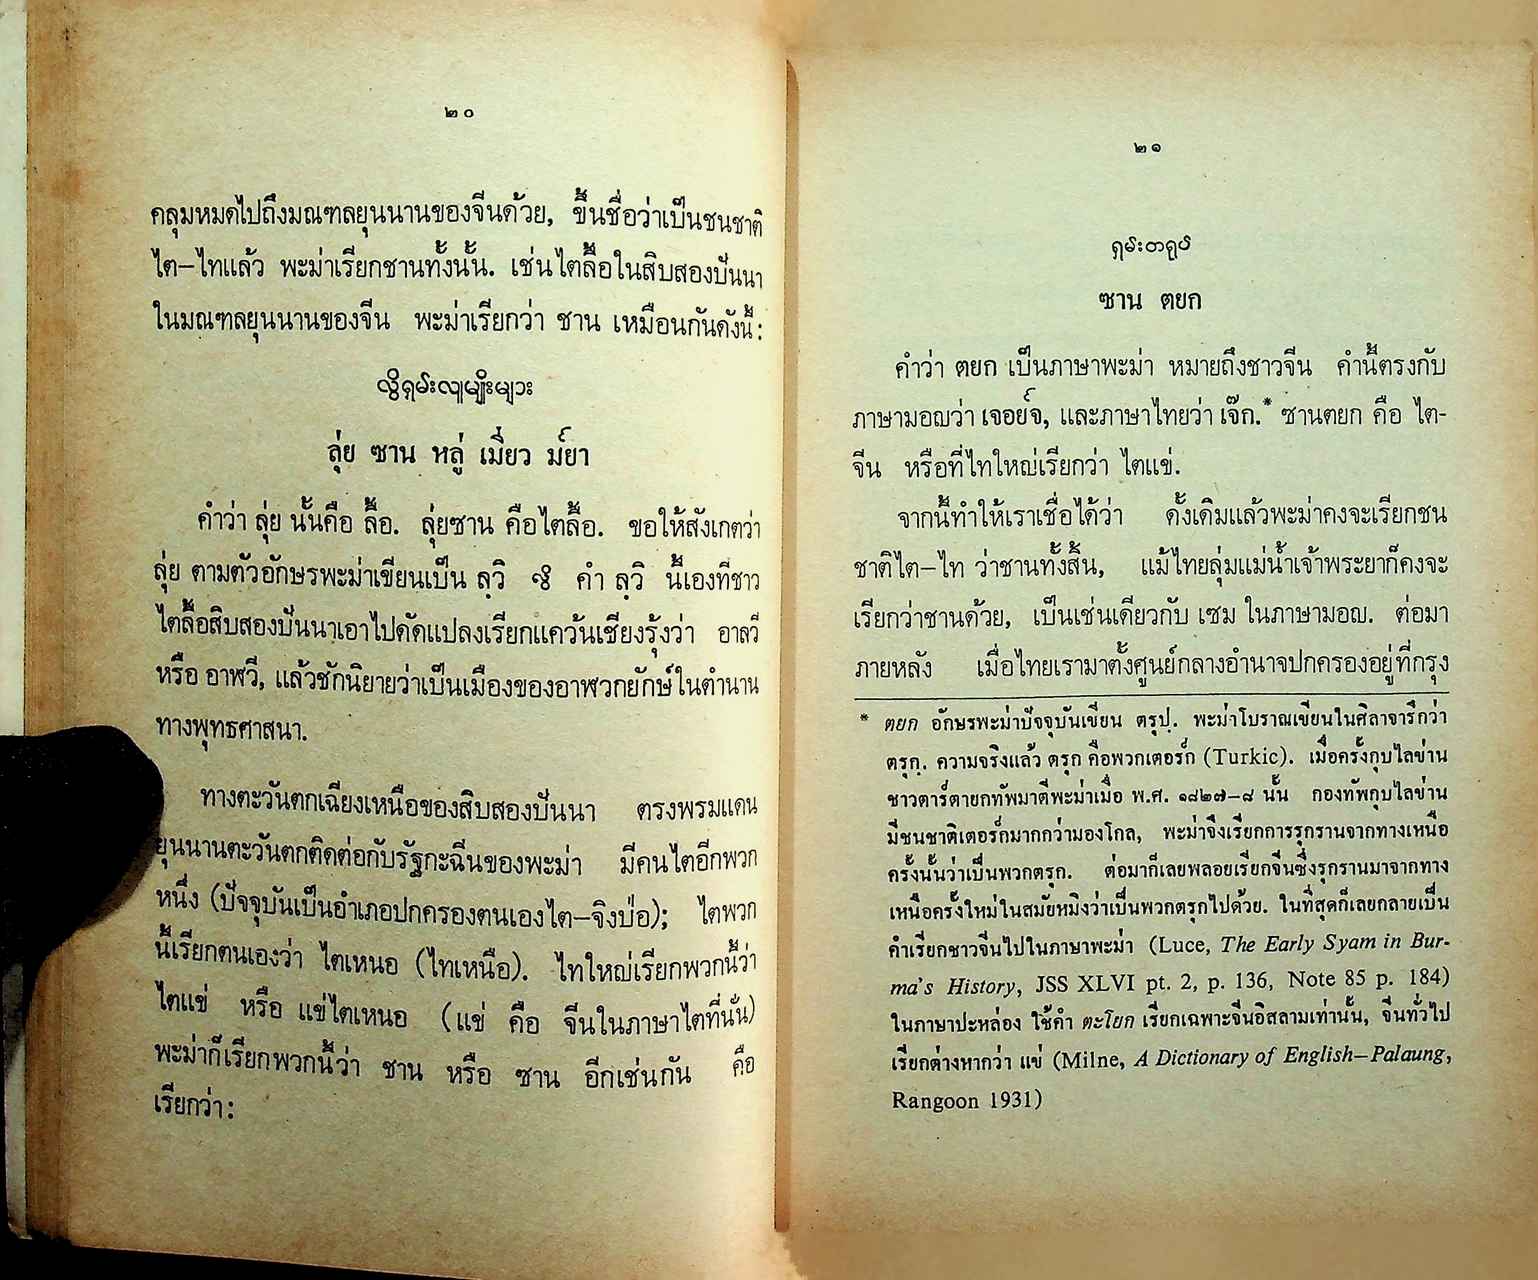 ๒๐
คลุมหมดไปถึงมณฑลยุนนานของจีนด้วย, ขึ้นชื่อว่าเป็นชนชาติ
ไต–ไทแล้ว พะม่าเรียกชานทั้งนั้น. เช่นไตลื้อในสิบสองปันนา
ในมณฑลยุนนานของจีน พะม่าเรียกว่า ชาน เหมือนกันดังนี้:
လွိရှမ်းလူမျိုးများ
ลุ่ย ซาน หลู่ เมี่ยว ม์ยา
คำว่า ลุ่ย นั้นคือ ลื้อ. ลุ่ยซาน คือไตลื้อ. ขอให้สังเกตว่า
ลุ่ย ตามตัวอักษรพะม่าเขียนเป็น ลฺวิ လွိ คำ ลฺวิ นี้เองที่ชาว
ไตลื้อสิบสองปันนาเอาไปดัดแปลงเรียกแคว้นเชียงรุ้งว่า อาลวี
หรือ อาฬวี, แล้วชักนิยายว่าเป็นเมืองของอาฬวกยักษ์ในตำนาน
ทางพุทธศาสนา.
ทางตะวันตกเฉียงเหนือของสิบสองปันนา ตรงพรมแดน
ยุนนานตะวันตกติดต่อกับรัฐกะฉิ่นของพะม่า มีคนไตอีกพวก
หนึ่ง (ปัจจุบันเป็นอำเภอปกครองตนเองไต–จิงป่อ); ไตพวก
นี้เรียกตนเองว่า ไตเหนอ (ไทเหนือ). ไทใหญ่เรียกพวกนี้ว่า
ไตแข่ หรือ แข่ไตเหนอ (แข่ คือ จีนในภาษาไตที่นั่น)
พะม่าก็เรียกพวกนี้ว่า ชาน หรือ ซาน อีกเช่นกัน คือ
เรียกว่า:
๒๑
ရှမ်းတရုပ်
ซาน ตยก
คำว่า ตยก เป็นภาษาพะม่า หมายถึงชาวจีน คำนี้ตรงกับ
ภาษามอญว่า เจอย์จ, และภาษาไทยว่า เจ๊ก.* ซานตยก คือ ไต-
จีน หรือที่ไทใหญ่เรียกว่า ไตแข่.
จากนี้ทำให้เราเชื่อได้ว่า ดั้งเดิมแล้วพะม่าคงจะเรียกชน
ชาติไต–ไท ว่าชานทั้งสิ้น, แม้ไทยลุ่มแม่น้ำเจ้าพระยาก็คงจะ
เรียกว่าชานด้วย, เป็นเช่นเดียวกับ เซม ในภาษามอญ. ต่อมา
ภายหลัง เมื่อไทยเรามาตั้งศูนย์กลางอำนาจปกครองอยู่ที่กรุง
* ตยก อักษรพะม่าปัจจุบันเขียน ตรุปฺ. พะม่าโบราณเขียนในศิลาจารึกว่า
ตรุกฺ. ความจริงแล้ว ตรุก คือพวกเตอร์ก (Turkic). เมื่อครั้งกุบไลข่าน
ชาวตาร์ตายกทัพมาตีพะม่าเมื่อ พ.ศ. ๑๘๒๗–๘ นั้น กองทัพกุบไลข่าน
มีชนชาติเตอร์กมากกว่ามองโกล, พะม่าจึงเรียกการรุกรานจากทางเหนือ
ครั้งนั้นว่าเป็นพวกตรุก. ต่อมาก็เลยพลอยเรียกจีนซึ่งรุกรานมาจากทาง
เหนือครั้งใหม่ในสมัยหมิงว่าเป็นพวกตรุกไปด้วย. ในที่สุดก็เลยกลายเป็น
คำเรียกชาวจีนไปในภาษาพะม่า (Luce, The Early Syam in Bur-
ma's History, JSS XLVI pt. 2, p. 136, Note 85 p. 184)
ในภาษาปะหล่อง ใช้คำ ตะโยก เรียกเฉพาะจีนอิสลามเท่านั้น, จีนทั่วไป
เรียกต่างหากว่า แข่ (Milne, A Dictionary of English–Palaung,
Rangoon 1931)